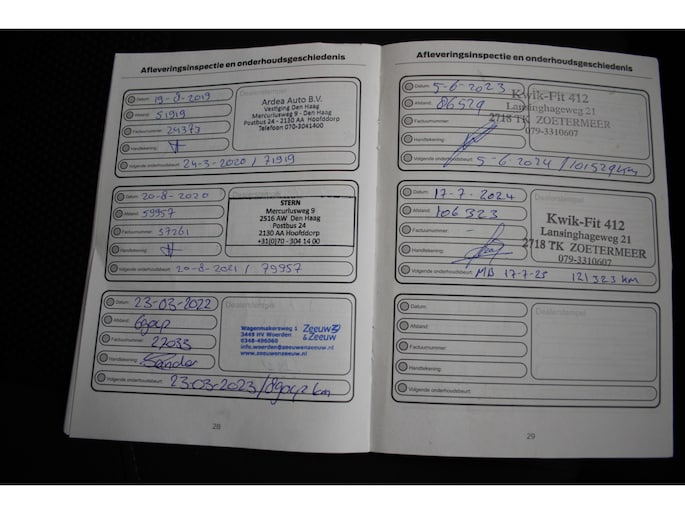 Afleveringsinspectie en onderhoudsgeschiedenis
Datum: 19-8-2019
Afstand: 51919
Factuurnummer: 24377
Handtekening:
Volgende onderhoudsbeurt: 24-3-2020 / 71919
Dealerstempel
Ardea Auto B.V.
Vestiging Den Haag
Mercuriusweg 9 - Den Haag
Postbus 24 - 2130 AA Hoofddorp
Telefoon 070-3041400
Datum: 20-8-2020
Afstand: 59957
Factuurnummer: 37261
Handtekening:
Volgende onderhoudsbeurt: 20-8-2021 / 79957
STERN
Mercuriusweg 9
2516 AW Den Haag
Postbus 24
2130 AA Hoofddorp
+31(0)70 - 304 14 00
Datum: 23-03-2022
Afstand:
Factuurnummer: 22033
Handtekening: Sander
Volgende onderhoudsbeurt: 23-03-2023/ km
Dealerstempel
Wagenmakersweg 1
3449 HV Woerden
0348-496060
info.woerden@zeeuwenzeeuw.nl
www.zeeuwenzeeuw.nl
Zeeuw
& Zeeuw
28
Afleveringsinspectie en onderhoudsgeschiedenis
Datum: 5-6-2023
Afstand: 86529
Factuurnummer:
Handtekening:
Volgende onderhoudsbeurt: 5-6-2024 / 101529km
Dealerstempel
Kwik-Fit 412
Lansinghageweg 21
2718 TK ZOETERMEER
079-3310607
Datum: 17-7-2024
Afstand: 106323
Factuurnummer:
Handtekening:
Volgende onderhoudsbeurt: MB 17-7-25 121323 km
Dealerstempel
Kwik-Fit 412
Lansinghageweg 21
2718 TK ZOETERMEER
079-3310607
Datum:
Afstand:
Factuurnummer:
Handtekening:
Volgende onderhoudsbeurt:
Dealerstempel
29